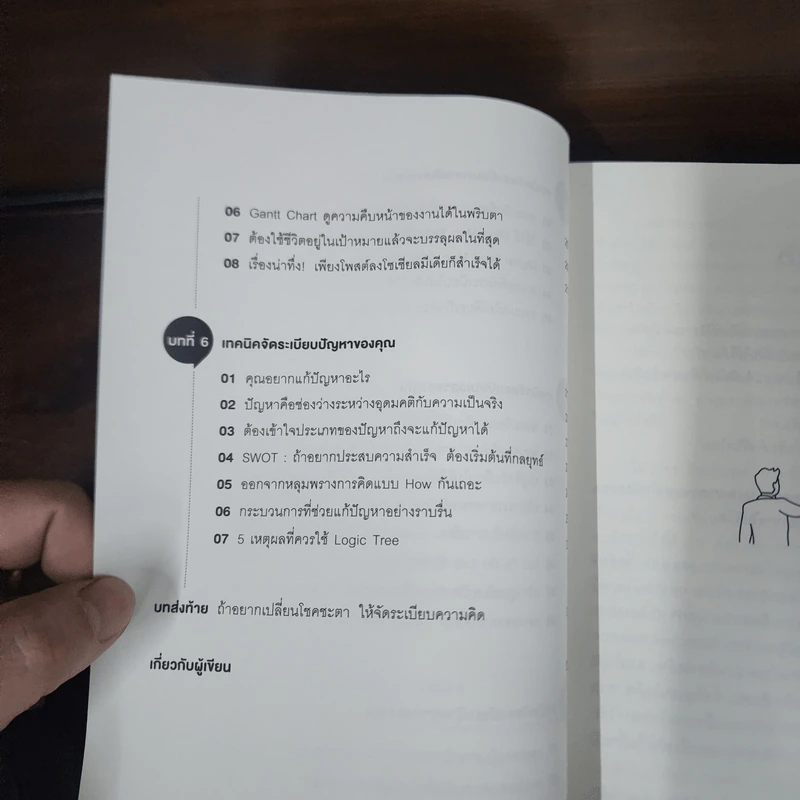 06 Gantt Chart ดูความคืบหน้าของงานได้ในพริบตา
07 ต้องใช้ชีวิตอยู่ในเป้าหมายแล้วจะบรรลุผลในที่สุด
08 เรื่องน่าทึ่ง! เพียงโพสต์ลงโซเชียลมีเดียก็สำเร็จได้
บทที่ 6 เทคนิคจัดระเบียบปัญหาของคุณ
01 คุณอยากแก้ปัญหาอะไร
02 ปัญหาคือช่องว่างระหว่างอุดมคติกับความเป็นจริง
03 ต้องเข้าใจประเภทของปัญหาถึงจะแก้ปัญหาได้
04 SWOT : ถ้าอยากประสบความสำเร็จ ต้องเริ่มต้นที่กลยุทธ์
05 ออกจากหลุมพรางการคิดแบบ How กันเถอะ
06 กระบวนการที่ช่วยแก้ปัญหาอย่างราบรื่น
07 5 เหตุผลที่ควรใช้ Logic Tree
บทส่งท้าย ถ้าอยากเปลี่ยนโชคชะตา ให้จัดระเบียบความคิด
เกี่ยวกับผู้เขียน